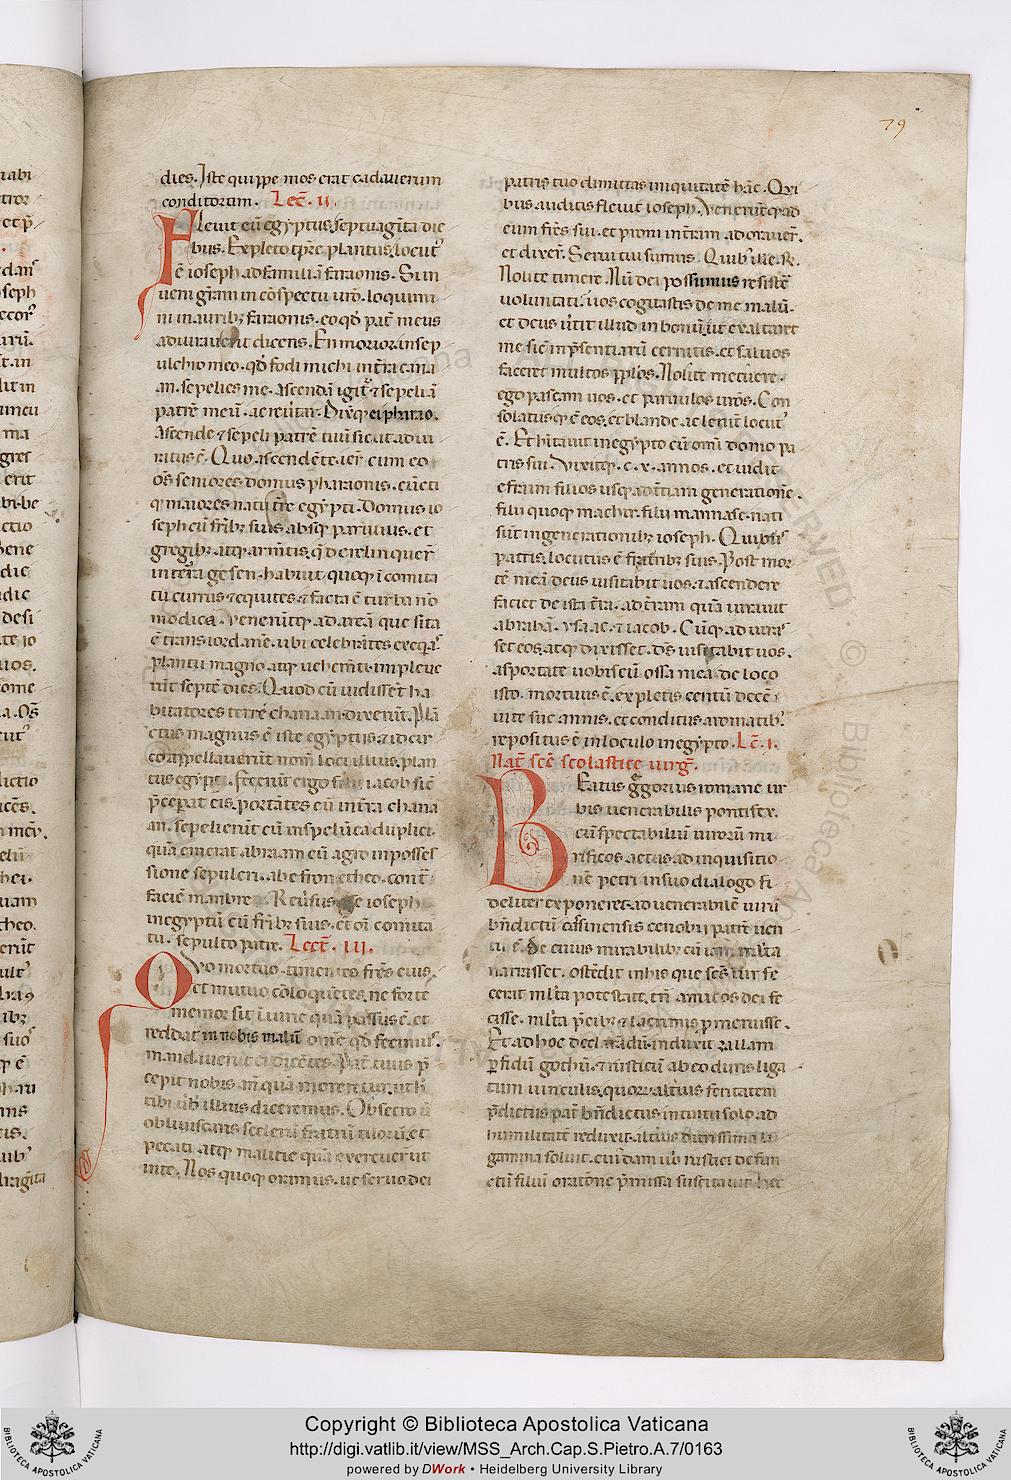 79
dies. Iste quippe mos erat cadauerum
conditorum. Lec̄. ii.
Fleuit eū egyptus. septuaginta die
bus. Expleto tp̄re planctus. locut'
ē ioseph ad familiā faraonis. Si in
ueni gr̄am in cōspectu uro. loquimi
ni in aurib; faraonis. eo qd̄ pat̄ meus
adiurauerit dicens. En morior. in sep
ulchro meo. qd̄ fodi michi in tr̄a cana
an. sepelies me. ascendā igit̄ & sepeliā
patrē meū. ac reuertar. Dixq; ei pharao.
Ascende & sepeli patrē tuū sicut adiu
ratus ē. Quo ascendēte. ier̄ cum eo
oēs seniores domus pharaonis. cūcti
q; maiores natu tr̄e egypti. Domus io
seph cū fr̄ib; suis. absq; paruulis. et
gregib; atq; armītis. q̄ dereliquer̄
in terra gesen. habuit quoq; ī comita
tu currus & equites. & facta ē turba nō
modica. Venerunt q; ad areā que sita
ē trans iordanē. ubi celebrātes exeqa's
planctu magno atq; uehemīti. impleue
rūt septē dies. Quod cū uidisset ha
bitatores terre chanaan. dixerūt. Plā
ctus magnus ē iste egyptiis. & idcir
co appellauerūt nom̄ loci illius. plan
ctus egypti. fecerūt ergo filii iacob sic̄
p̄ceperat eis. portātes eū in trā chana
an. sepelierūt eū in spelūca duplici.
quā emerat abraam cū agro in posses
sione sepulcri. ab efron etheo. contra
faciē mambre. Reuersusq; ē ioseph
in egyptū cū fr̄ib; suis. et oī comita
tu. sepulto patre. Lect̄. iii.
Quo mortuo. timentes fr̄es eius.
et mutuo colloquētes. ne forte
memor sit iniurie quā passus ē. et
reddat nobis malū om̄e qd̄ fecimus.
mandauerūt ei dicētes. Pat̄ tuus p̄
cepit nobis ant̄ quā moreretur. ut h̄
tibi ub̄ illius diceremus. Obsecro ut
obliuiscaris sceleris fratrū tuorū. et
peccati atq; malitie quā exercuerūt
in te. Nos quoq; oramus. ut seruo dei
patris tuo dimittas iniquitatē hāc. Qui
bus auditis fleuit ioseph. Veneruntq; ad
eum fr̄es sui. et proni in terram adorauer̄.
et dixer̄. Serui tui sumus. Quib' ille. R̄.
Nolite timere. Nū dei possumus resistere
uoluntati. uos cogitastis de me malū.
et deus uertit illud in bonū. ut exaltaret
me sic̄ inp̄sentiarū cernitis. et saluos
faceret multos pplos. Nolite metuere.
ego pascam uos. et paruulos ur̄os. Con
solatusq; ē eos. et blande ac leniter locut'
ē. Et hitauit in egypto cū omī domo pa
tris sui. Vixitq; c. x. annos. et uidit
efraim filios usq; ad t̄ciam generationē.
filii quoq; machir. filii manasse. nati
sūt in generationib; ioseph. Quibus
peractis. locutus ē fratribus suis. Post mor
tē meā deus uisitabit uos. & ascendere
faciet de ista tr̄a. ad tr̄am quā iurauit
abrahā. ysaac. & iacob. Cūq; adiuras
set eos. atq; dixisset. ds̄ uisitabit uos.
asportate uobiscū ossa mea de loco
isto. mortuus ē. expletis centū decē
uite sue annis. et conditus aromatib'
repositus ē in loculo in egypto. Lc̄. i.
Nat̄ scē scolastice uirg̅.
Beatus ḡgorius romane ur
bis uenerabilis pontifex.
cū spectabiliū uirorū mi
rificos actus ad inquisitio
nē petri in suo dialogo fi
deliter exponeret. ad uenerabilē uirū
bn̄dictū cassinensis cenobii patrē uen
tū ē. de cuius mirabilib; cū iam mlta
narrasset. ostēdit in his que scs̄ uir fe
cerit mlta potestate. tn̄ amicos dei fe
cisse. mlta p̄cib; & lacrimis p̄meruisse.
Et ad hoc declarādū. induxit zallam
p̄fidū gothū. & rusticū ab eo duris liga
tum uinculis. quor̄ alterius feritatem
p̄dictus pat̄ bn̄dictus intuitu solo. ad
humilitatē reduxit. alterius durissima li
gamina soluit. cuiusdam u'o rustici defun
ctū filiū oratione p̄missa suscitauit. hec
Copyright © Biblioteca Apostolica Vaticana
http://digi.vatlib.it/view/MSS_Arch.Cap.S.Pietro.A.7/0163
powered by DWork • Heidelberg University Library
BIBLIOTECA APOSTOLICA VATICANA
BIBLIOTECA APOSTOLICA VATICANA